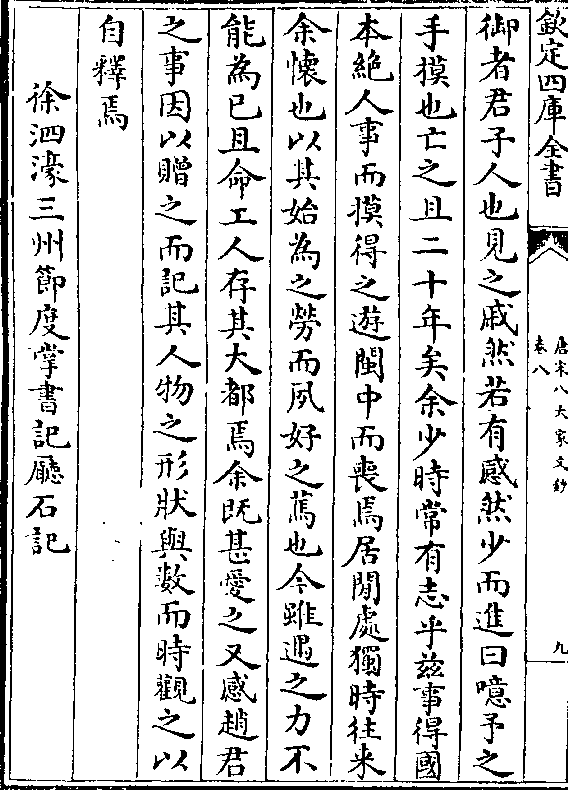 欽定四庫全書
唐宋八大家文鈔
卷八
九
御者君子人也見之戚然若有感然少而進曰噫予之
手摸也亡之且二十年矣余少時常有志乎茲事得國
本絶人事而摸得之遊閩中而喪焉居閒處獨時往来
余懷也以其始為之勞而夙好之萬也今雖遇之力不
能為已且命工人存其大都焉余既甚愛之又感趙君
之事因以贈之而記其人物之形狀與數而時觀之以
自釋焉
徐泗濠三州節度掌書記廳石記